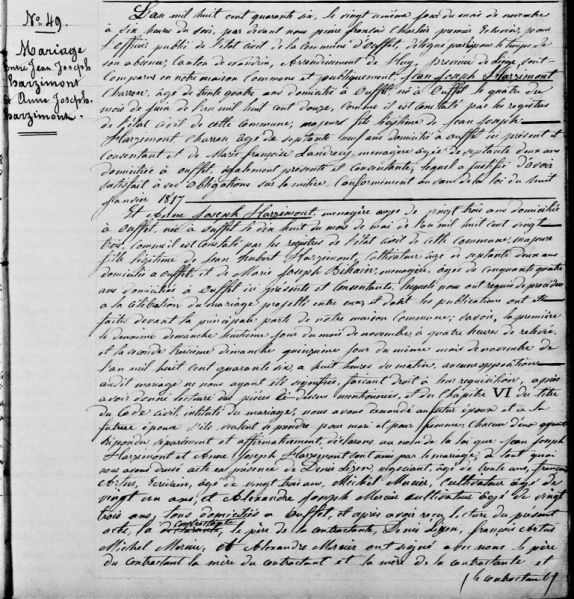 N.º 49.
Mariage
Entre Jean Joseph
harzimont
et Anne Joseph
harzimont.
L'an mil huit cent quarante six, le vingt unième jour du mois de novembre
à six heures du soir, par devant nous pierre françois Charlier premier Echevin pour
l'officier public de l'état civil de la Commune d'Ouffet, délégué par pour le temps de
son absence, Canton de nandrin, Arrondissement de Huy, province de Liège sont
Comparus en notre maison Commune et publiquement, Jean Joseph Harzimont
Charron, âgé de trente quatre ans domicilié à Ouffet né à Ouffet le quatre du
mois de juin de l'an mil huit cent douze, Comme il est constaté par les registres
de l'état civil de cette Commune; majeure fils légitime de Jean Joseph
Harzimont charron âgé de septante neuf ans domicilié à ouffet ici présent et
Consentant et de Marie françoise ménagère âgée de septante deux ans
domiciliée à Ouffet, également présente et Consentante, lequel a justifié d'avoir
satisfait à ses obligations sur la milice, Conformément au vœu de la loi du huit
Janvier 1817
Et Anne Joseph Harzimont, ménagère âgée de vingt trois ans domiciliée
à Ouffet, née à Ouffet le dix huit du mois de mai de l'an mil huit cent vingt
trois, Comme il est constaté par les registres de l'état civil de cette Commune; majeure
fille légitime de Jean hubert Harzimont, Cultivateur âgé de septante deux ans
domicilié à Ouffet, et de Marie Joseph ménagère, âgée de cinquante quatre
ans domiciliée à Ouffet ici présents et Consentants, lesquels nous ont requis de procéder
à la Célébration du mariage projetté entre eux et dont les publications ont été
faites devant la principale porte de notre maison Commune; savoir, la première
le deuxième dimanche huitième jour du mois de novembre à quatre heures de relevée,
et la seconde troisième dimanche quinzième jour du même mois de novembre de
l'an mil huit cent quarante six, à huit heures du matin, aucune opposition
audit mariage ne nous ayant été signifiée, faisant droit à leur requisition, après
avoir donné lecture des pièces ci-dessus mentionnées, et du Chapitre VI du titre
du Code civil, intitulé du mariage, nous avons demandé au futur époux et à la
future épouse s'ils veulent se prendre pour mari et pour femme; chacun d'eux ayant
répondu séparément et affirmativement, déclarons au nom de la loi que Jean Joseph
Harzimont et Anne Joseph Harzimont sont unis par le mariage; de tout quoi
nous avons dressé acte en présence de Louis Lizen, négociant, âgé de trente ans, françois
Artus, Ecrivain, âgé de vingt trois ans, Michel Mercier, Cultivateur âgé de
vingt cinq ans, et Alexandre Joseph Mercier Cultivateur âgé de vingt
trois ans, tous domiciliés à Ouffet, et après avoir reçu lecture du présent
acte, la contractante, le père de la contractante, Louis Lizen, françois Artus
Michel Mercier, et Alexandre Mercier ont signé avec nous le père
du contractant la mère du contractant et la mère de la contractante et
le contractant